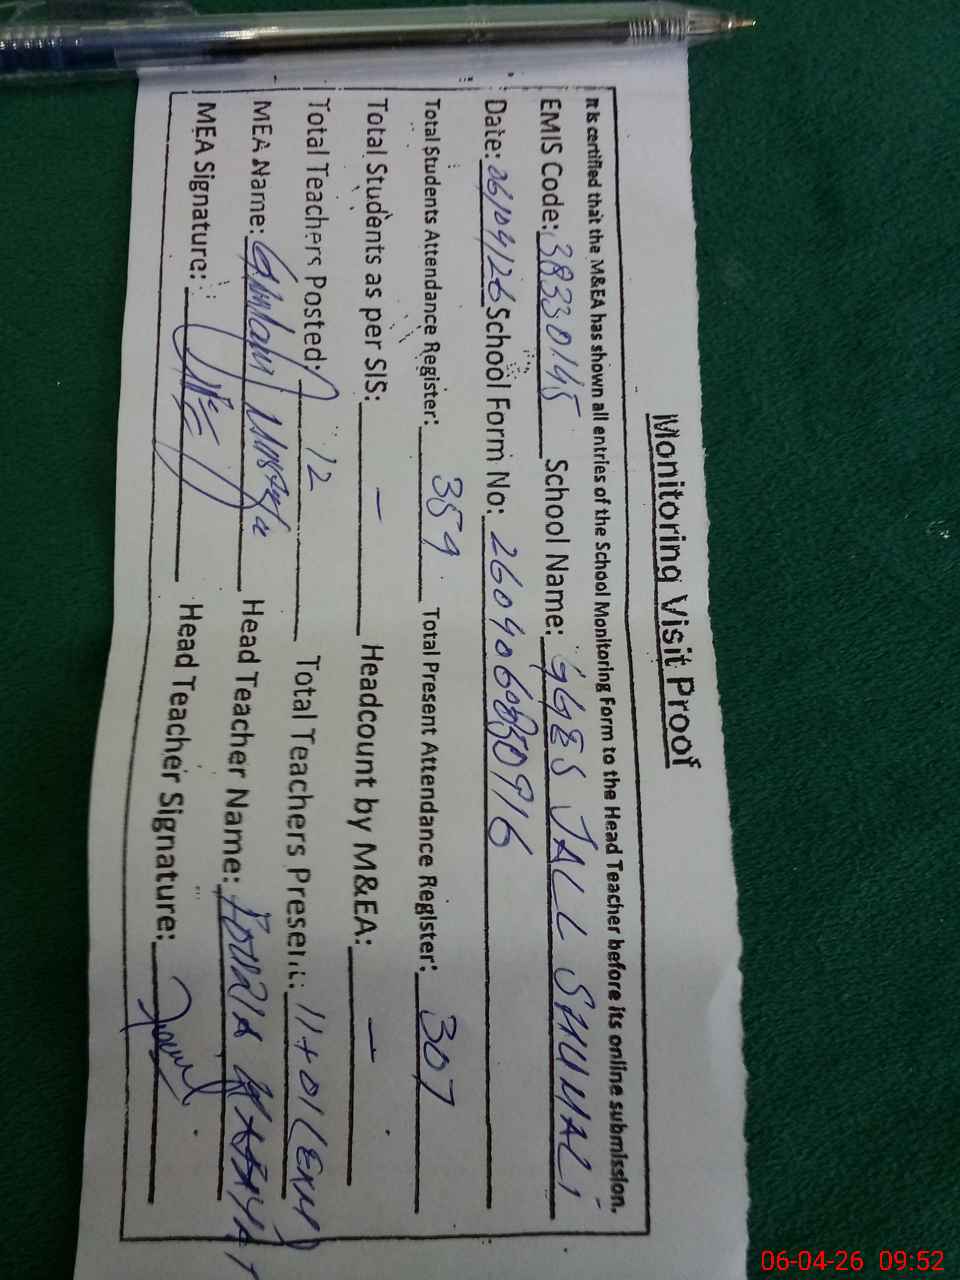 Monitoring Visit Proof
It is certified that the M&EA has shown all entries of the School Monitoring Form to the Head Teacher before its online submission.
EMIS Code: 38330145 School Name: GGES JALL SHUMALi
Date: 06/04/26 School Form No: 260406
Total Students Attendance Register: 359 Total Present Attendance Register: 307
Total Students as per SIS: - Headcount by M&EA: -
Total Teachers Posted: 12 Total Teachers Present: 11+01(
MEA Name: Ghulam Head Teacher Name:
MEA Signature: Head Teacher Signature:
06-04-26 09:52